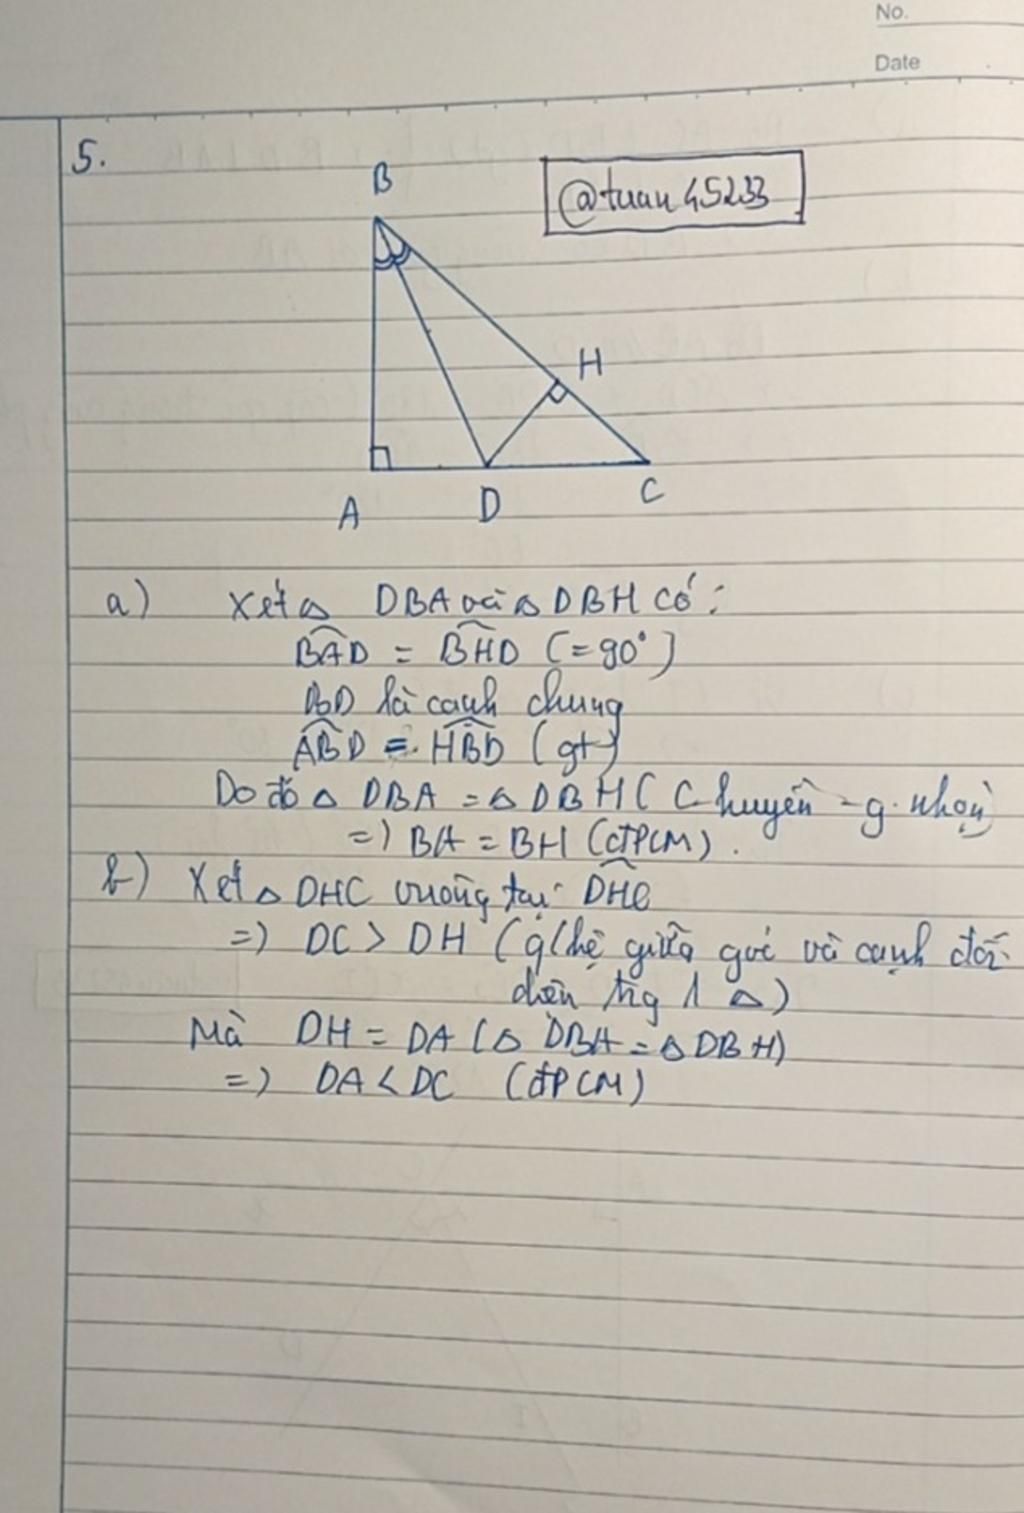 No.
Date
5.
@tuan45233
B
H
A D C
a) Xét △ DBA và △ DBH có:
BAD = BHD (=90°)
BD là cạnh chung
ABD = HBD (gt)
Do đó △ DBA = △ DBH (C-huyền - g.nhọn)
=) BA = BH (ĐPCM).
b) Xét △ DHC vuông tại DHC
=) DC > DH (q/hệ giữa góc và cạnh đối
diện trg 1 △)
Mà DH = DA (△ DBA = △ DBH)
=) DA < DC (ĐPCM)